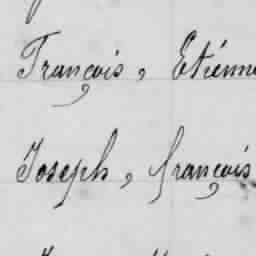 François, Etienne
Joseph, françois